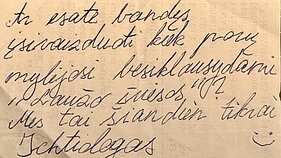 Ar esate bandę
įsivaizduoti kiek porų
mylėjosi besiklausydami
"Laužo šviesos"?
Mes tai šiandien tikrai
Ichtidogas :)